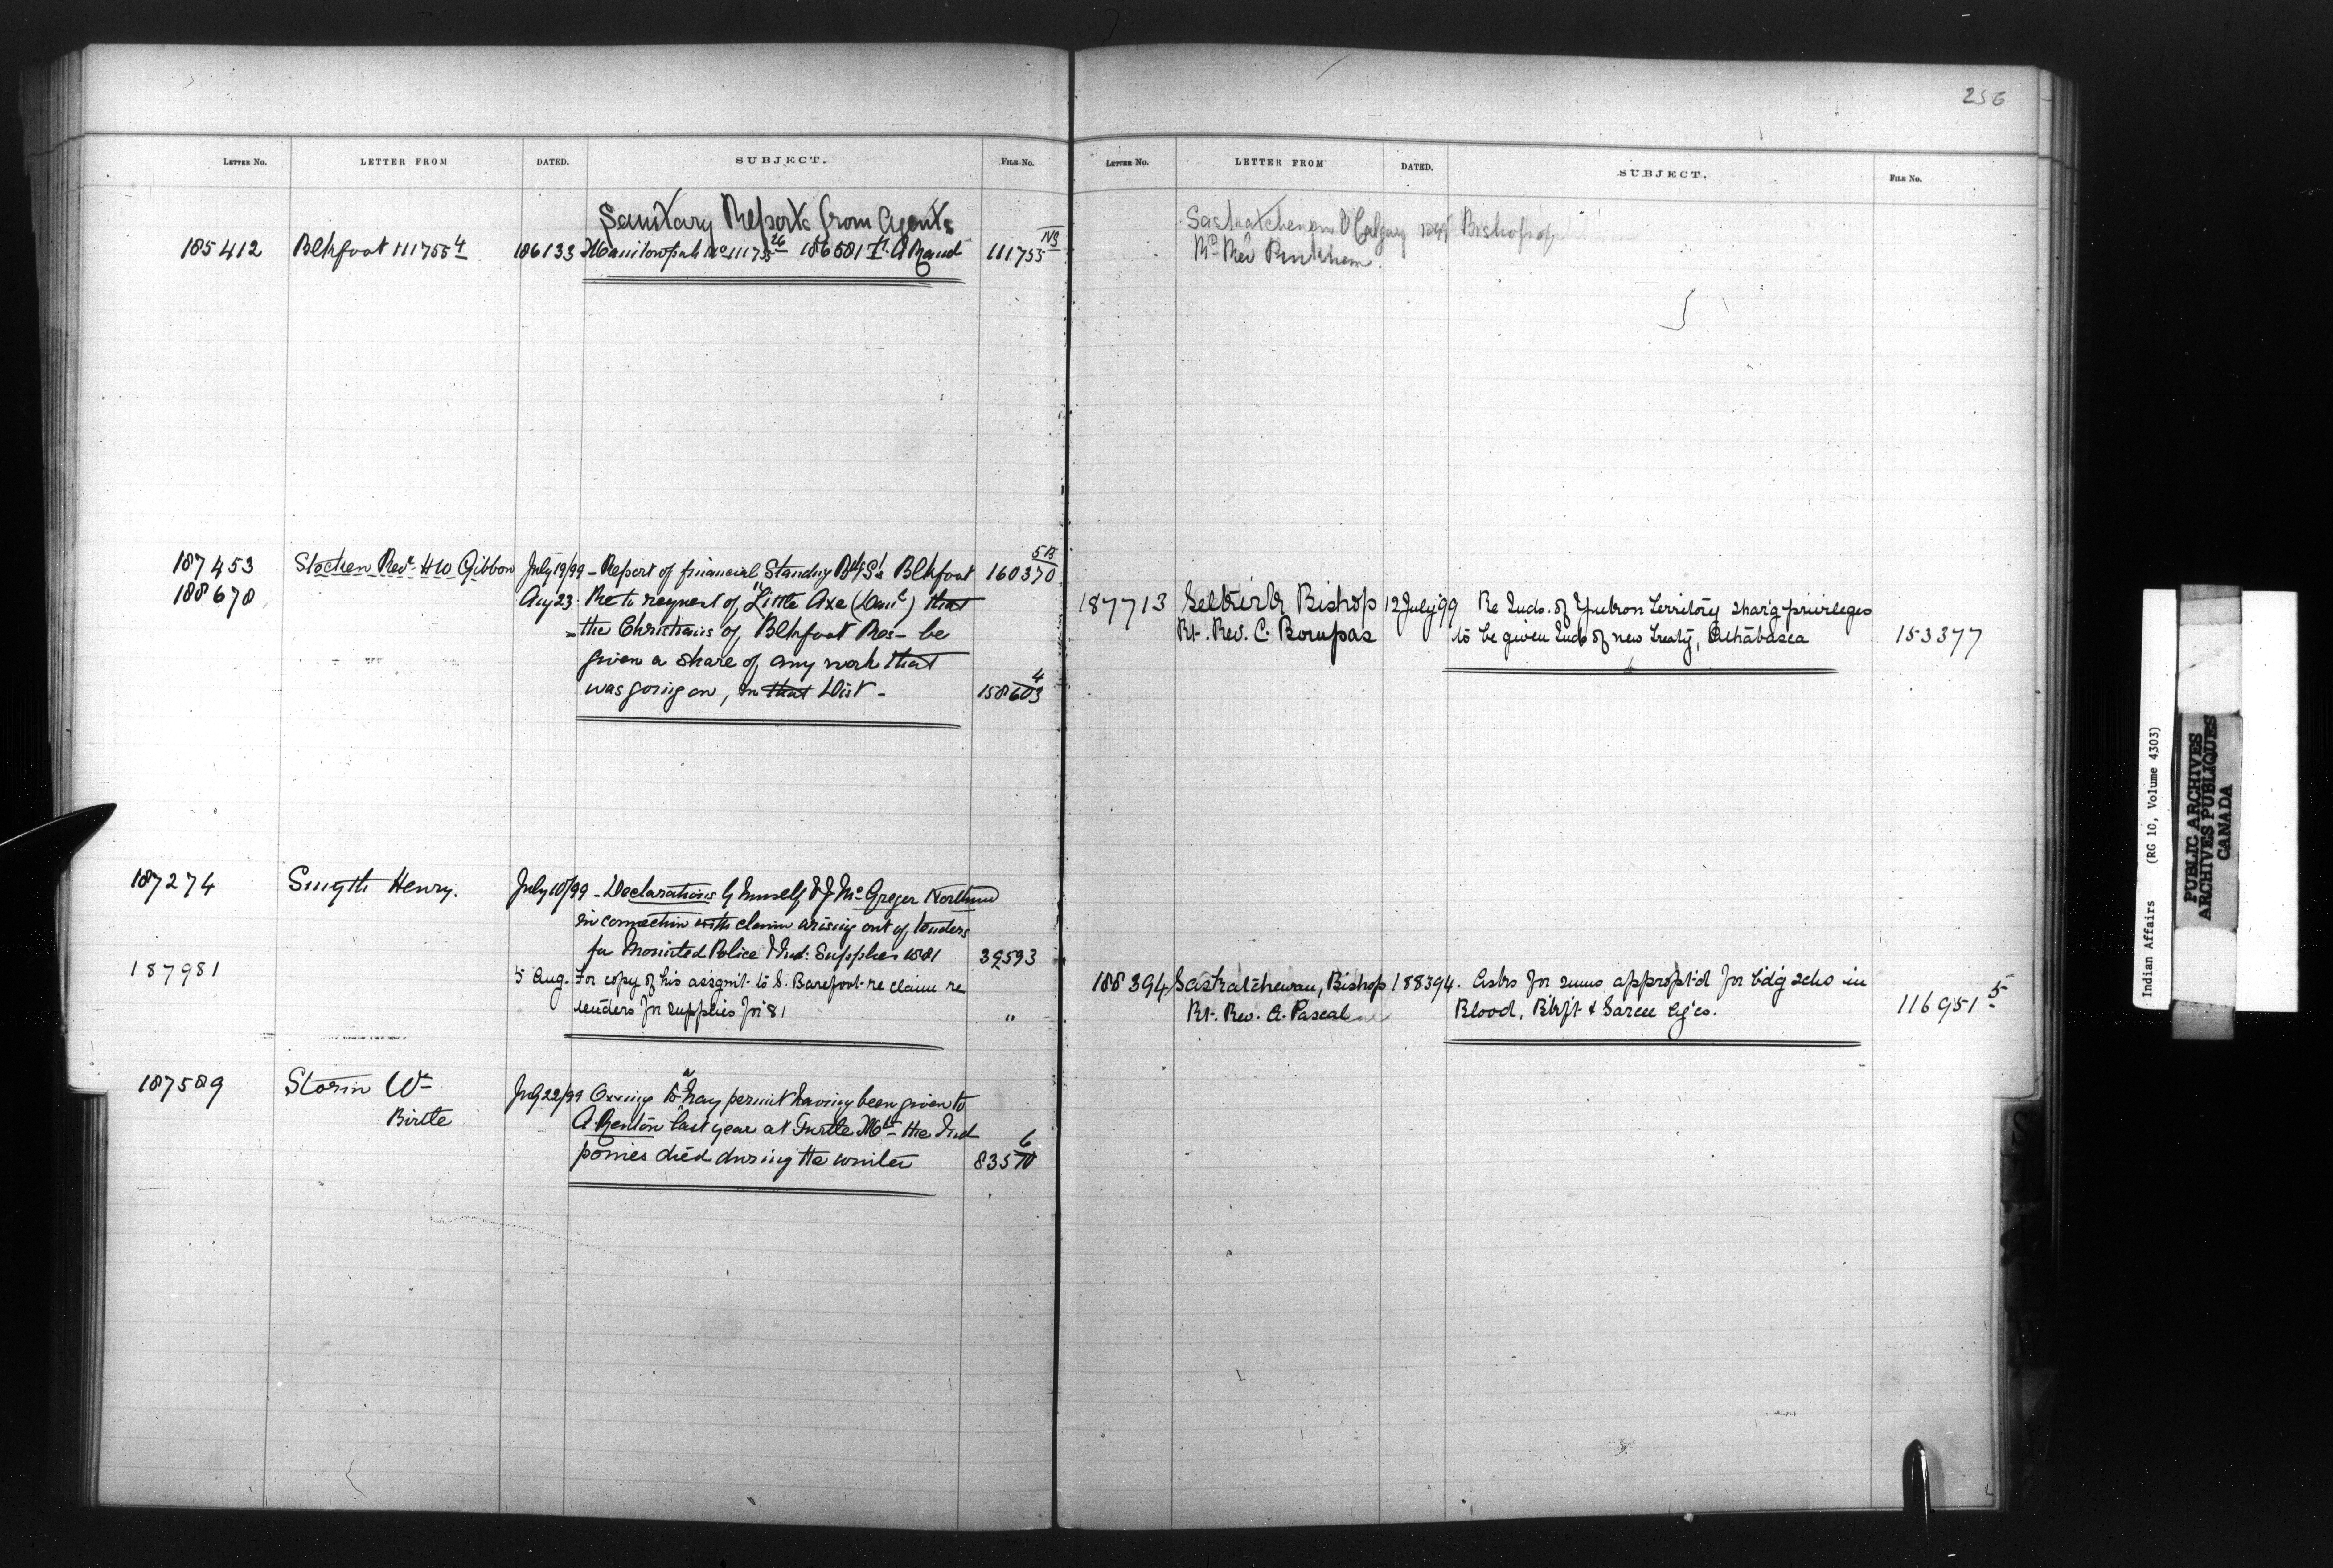 256
LETTER No. LETTER FROM DATED. SUBJECT. FILE No.
Sanitary Reports from Agents
185412 Blkfoot 111755 4 186133 Manitowpah No 111755 26 186581 111755
187453 Stocken Revd. H W Gibbon July 19/99 - Report of financial Standing Bdg S's Blkfoot 160370
188678 Aug 23. Re to request of "Little Axe (Danl) that
the Christians of Blkfoot Res- be
given a share of any work that
was going on, in that Dist - 158603 4
187274 Smyth Henry. July 10/99 - Declarations by himself & J McGreger
in connection with claim arising out of tenders
for Mounted Police & Ind: Supplies 1881 39593
187981 5 Aug. For copy of his assgnt. to S. Barefoot re claim re
tenders for supplies for '81 "
187589 Storm Wm July 22/99 Owing to a hay permit having been given to
Birtle A Renton last year at Turtle Mt- the Ind
ponies died during the winter 83570 6
LETTER No. LETTER FROM DATED. SUBJECT. FILE No.
Saskatchewan & Calgary Bishop of
Rt Rev Pinkham
187713 Selkirk Bishop 12 July '99 Re Inds. of Yukon Territory shar'g privileges
Rt. Rev. C. Bompas to be given Inds of new Treaty, Athabasca 153377
188394 Saskatchewan, Bishop 188394. Asks for sums approp't'd for b'd'g schs in
Rt. Rev. A. Pascal Blood, Blkft & Sarcee Ag'cs. 116951 5
Indian Affairs (RG 10, Volume 4303)
PUBLIC ARCHIVES
ARCHIVES PUBLIQUES
CANADA